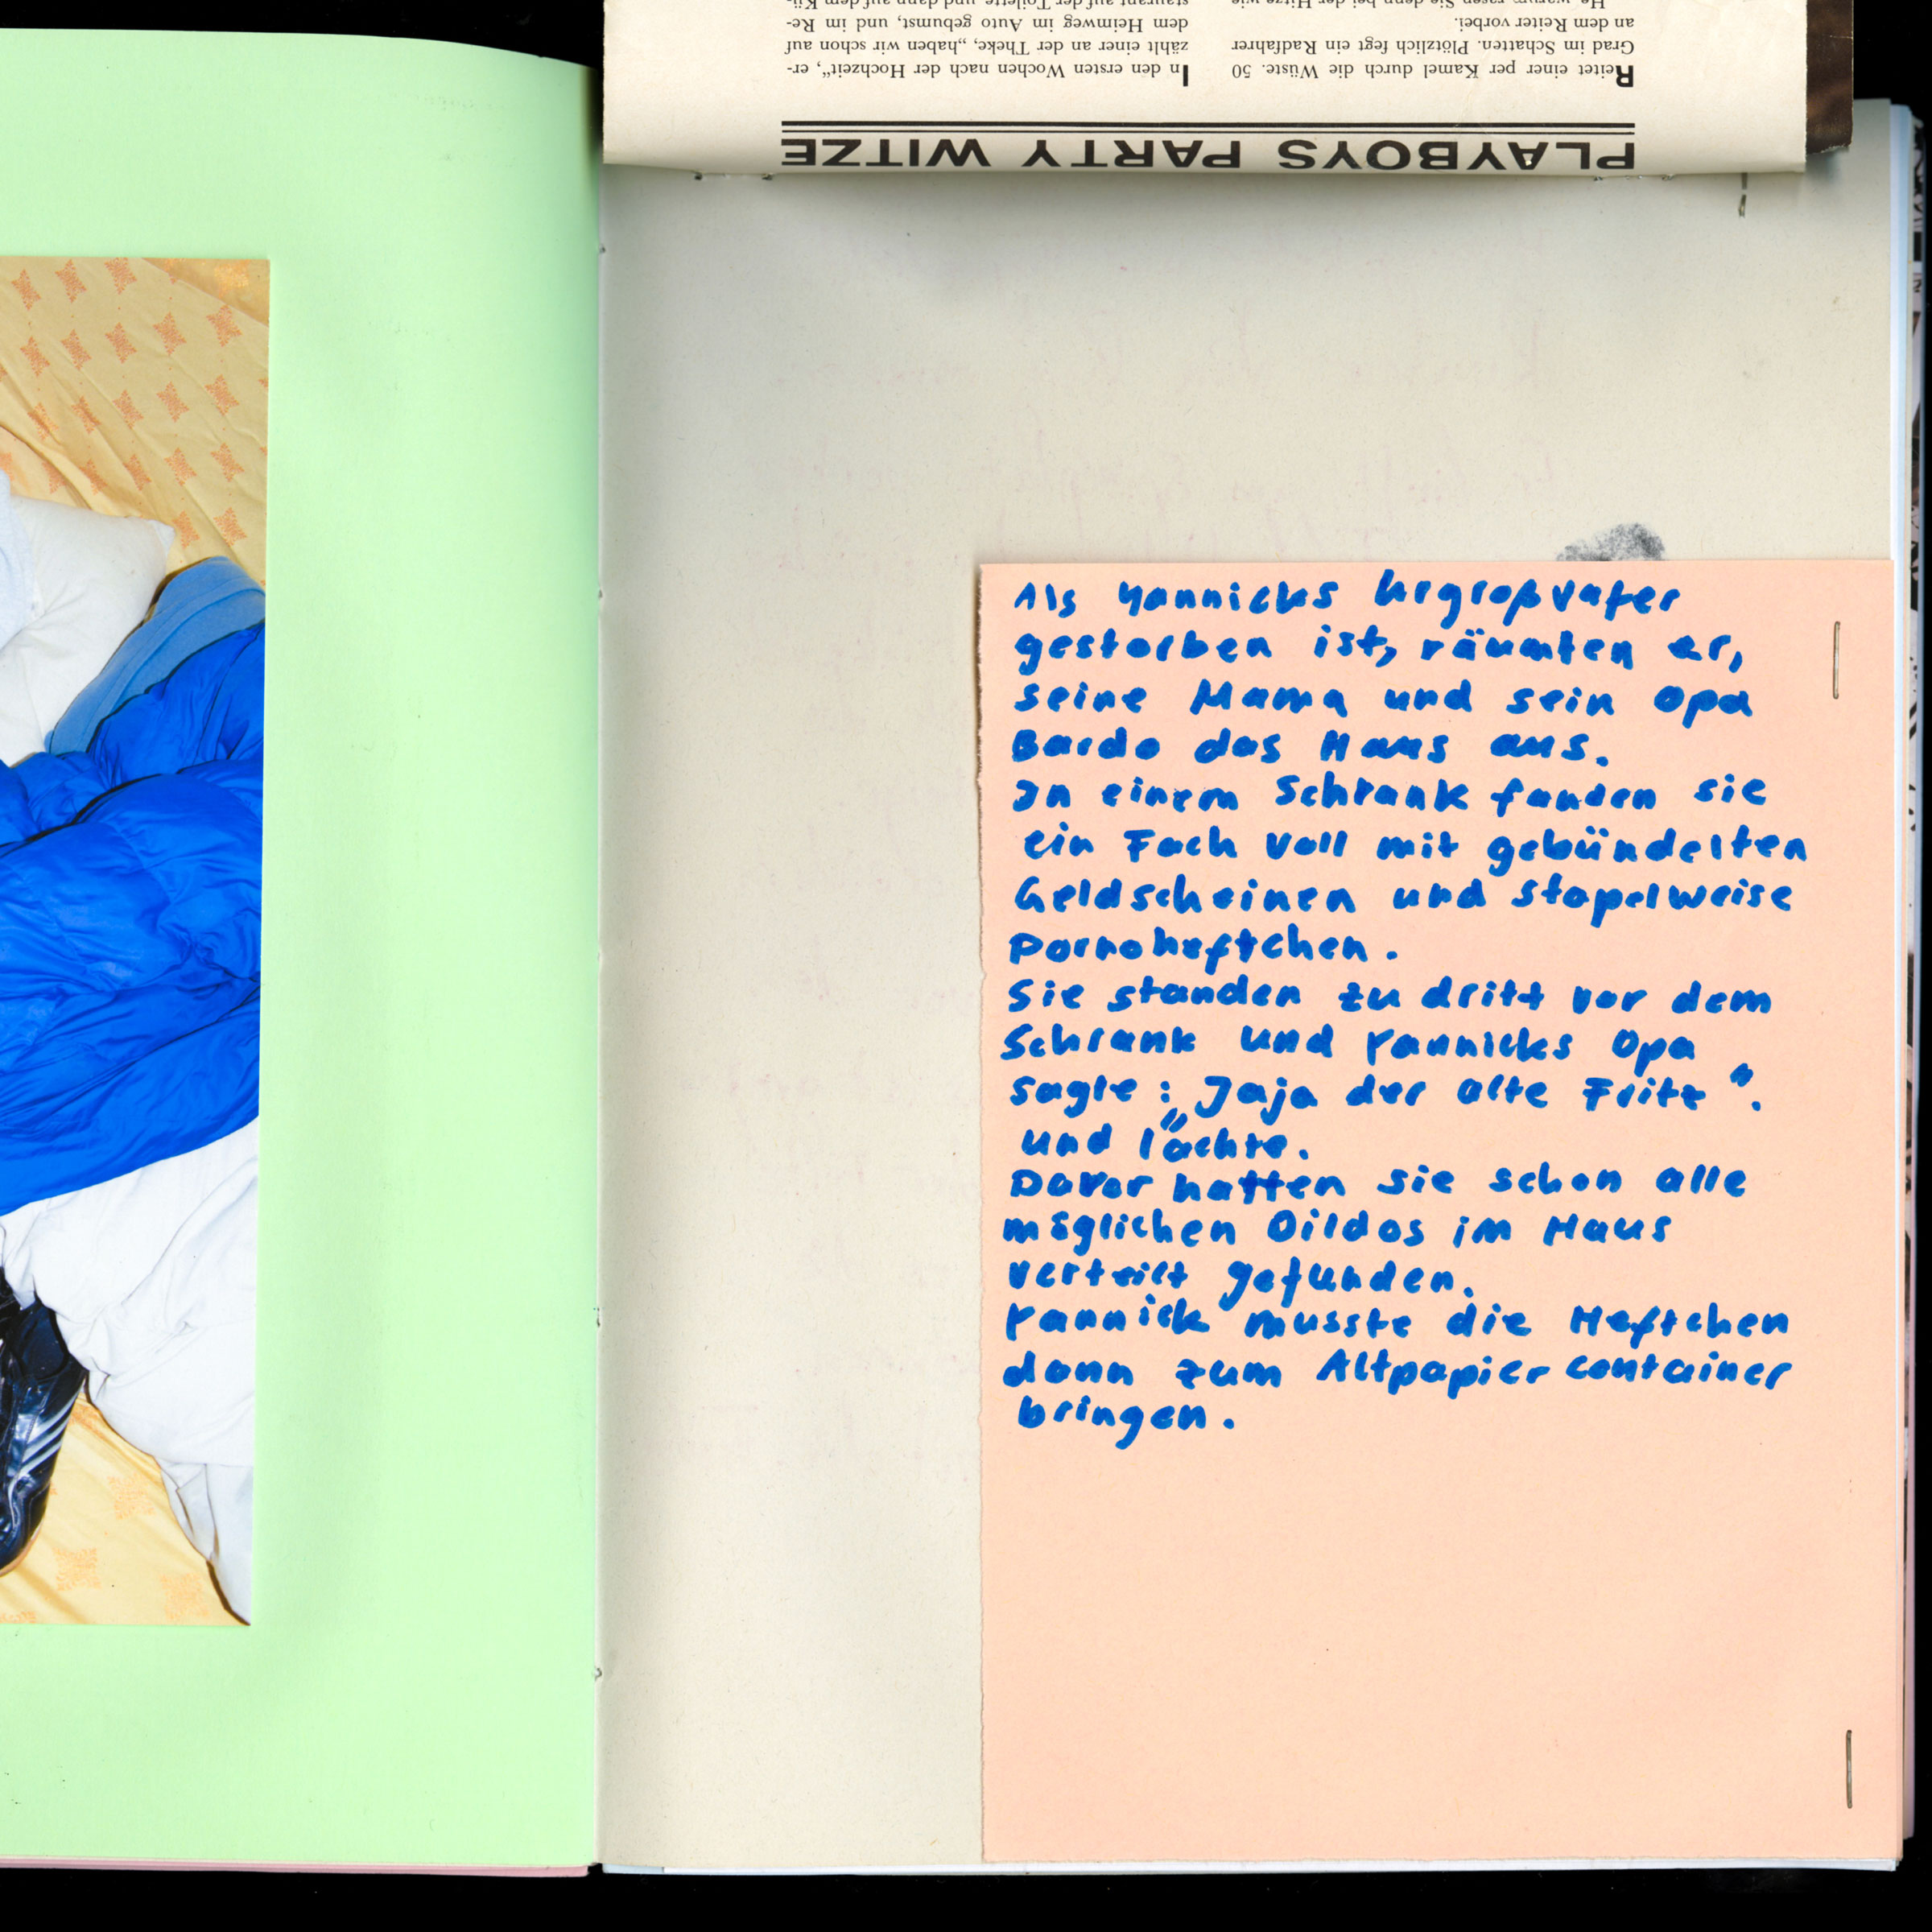 PLAYBOYS PARTY WITZE
Reitet einer per Kamel durch die Wüste. 50
Grad im Schatten. Plötzlich fegt ein Radfahrer
an dem Reiter vorbei.
In den ersten Wochen nach der Hochzeit“, er-
zählt einer an der Theke, „haben wir schon auf
dem Heimweg im Auto gebumst, und im Re-
staurant auf der Toilette und dann auf dem Kü-
Als Yannicks Urgroßvater
gestorben ist, räumten er,
seine Mama und sein Opa
Bardo das Haus aus.
In einem Schrank fanden sie
ein Fach voll mit gebündelten
Geldscheinen und stapelweise
Pornoheftchen.
Sie standen zu dritt vor dem
Schrank und Yannicks Opa
sagte: „Jaja der alte Fritz“.
und lächte.
Davor hatten sie schon alle
möglichen Dildos im Haus
verteilt gefunden.
Yannick musste die Heftchen
dann zum Altpapiercontainer
bringen.